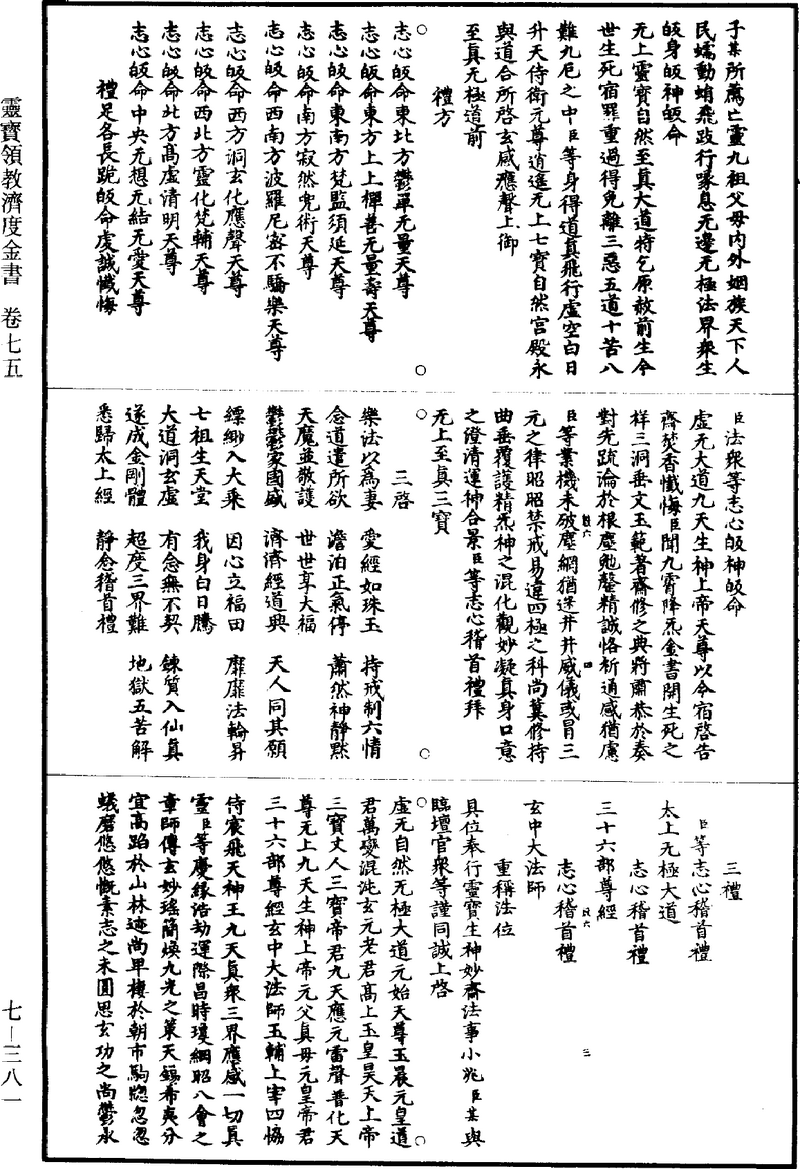 子某所薦亡靈九祖父母內外姻族天下人
民蠕動蛸飛跂行喙息无邊无極法界衆生
皈身皈神皈命
无上靈寶自然至真大道特乞原赦前生今
世生死宿罪重過得免離三惡五道十苦八
難九厄之中臣等身得道真飛行虛空白日
升天侍衛元尊逍遙无上七寶自然宮殿永
與道合所啓玄感應聲上御
至真无極道前
禮方
志心皈命東北方鬱單无量天尊
志心皈命東方上上禪善无量壽天尊
志心皈命東南方梵監須延天尊
志心皈命南方寂然兜術天尊
志心皈命西南方波羅尼蜜不驕樂天尊
志心皈命西方洞玄化應聲天尊
志心皈命西北方靈化梵輔天尊
志心皈命北方高虛清明天尊
志心皈命中央无想无結无愛天尊
禮足各長跪皈命虔誠懺悔
臣法衆等志心皈神皈命
虛无大道九天生神上帝天尊以今宿啓告
齋焚香懺悔臣聞九霄降炁金書開生死之
祥三洞垂文玉範著齋修之典將肅恭於奏
對先疏瀹於根塵勉罄精誠恪祈通感猶慮
臣等業機未破塵網猶迷井井威儀或冒三
元之律昭昭禁戒易違四極之科尚冀修持
曲垂覆護精炁神之混化觀妙凝真身口意
之澄清運神合景臣等志心稽首禮拜
无上至真三寶
三啓
樂法以爲妻 愛經如珠玉 持戒制六情
念道遣所欲 澹泊正氣停 蕭然神靜默
天魔並敬護 世世享大福
鬱鬱家國盛 濟濟經道興 天人同其願
縹緲入大乘 因心立福田 靡靡法輪昇
七祖生天堂 我身白日騰
大道洞玄虛 有念無不契 鍊質入仙真
遂成金剛體 超度三界難 地獄五苦解
悉歸太上經 靜念稽首禮
三禮
臣等志心稽首禮
太上无極大道
志心稽首禮
三十六部尊經
志心稽首禮
玄中大法師
重稱法位
具位奉行靈寶生神妙齋法事小兆臣某與
臨壇官衆等謹同誠上啓
虛无自然元極大道元始天尊玉晨元皇道
君萬變混沌玄元老君高上玉皇昊天上帝
三寶丈人三寶帝君九天應元雷聲普化天
尊无上九天生神上帝元父真母元皇帝君
三十六部尊經玄中大法師玉輔上宰四協
侍宸飛天神王九天真衆三界應感一切真
靈臣等慶緣浩劫運際昌時瓊綱昭八會之
章師傳玄妙瑤簡煥九光之策天錫希夷分
宜高蹈於山林迹尚早棲於朝市駒隙忽忽
蟻磨悠悠慨素志之未圓思玄功之尚鬱永
靈寶領教濟度金書 卷七五
七—三八一